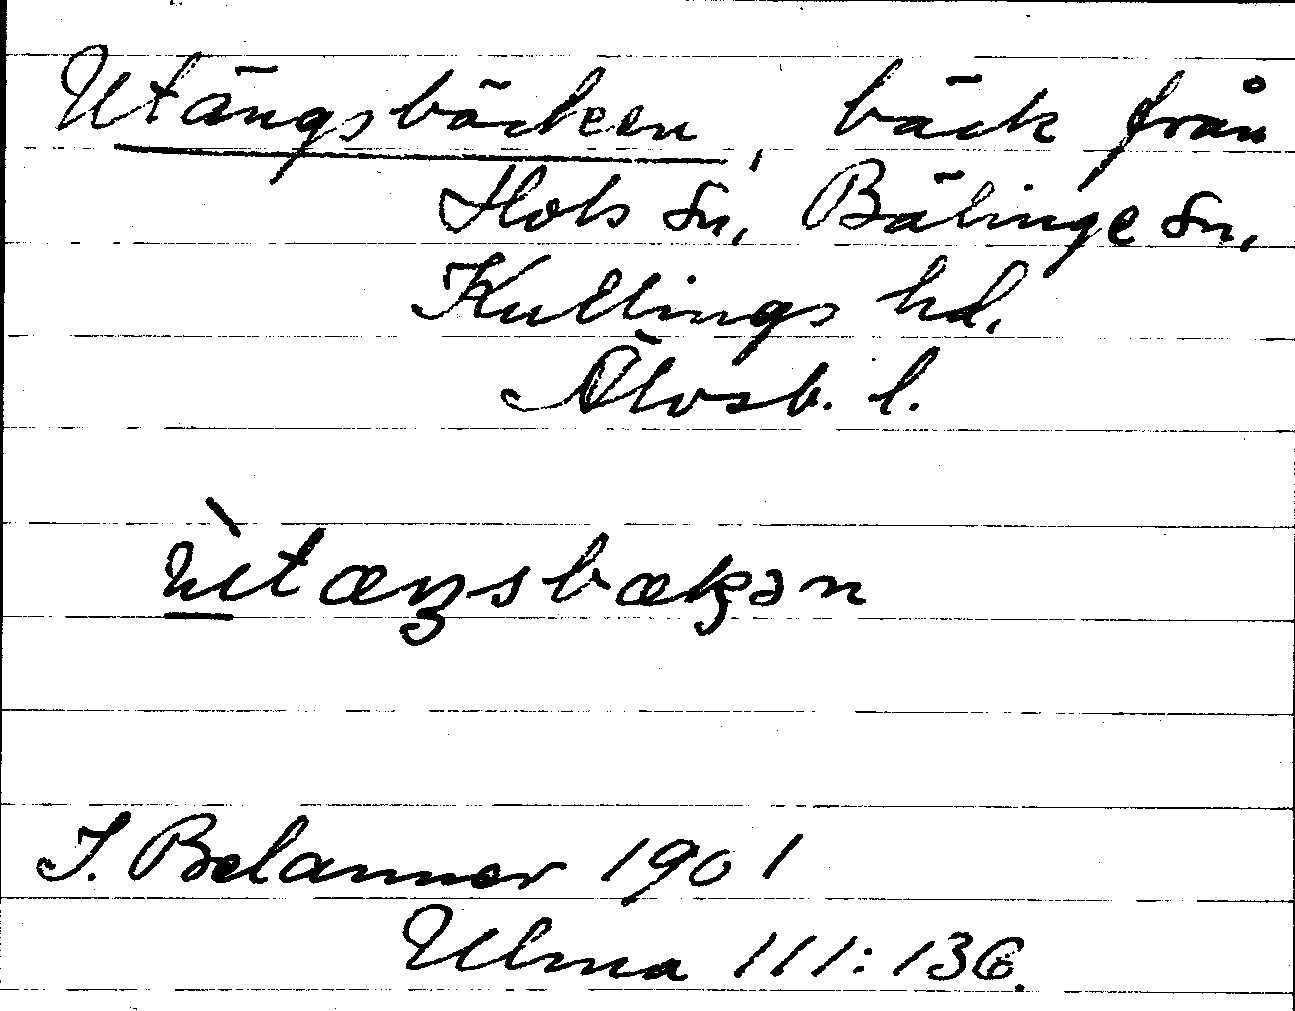 Utängsbäcken, bäck från
Hols sn, Bälinge sn,
Kullings hd.
Älvsb. l.
ùtæŋsbækən
I. Belanner 1901
Ulma 111:136.